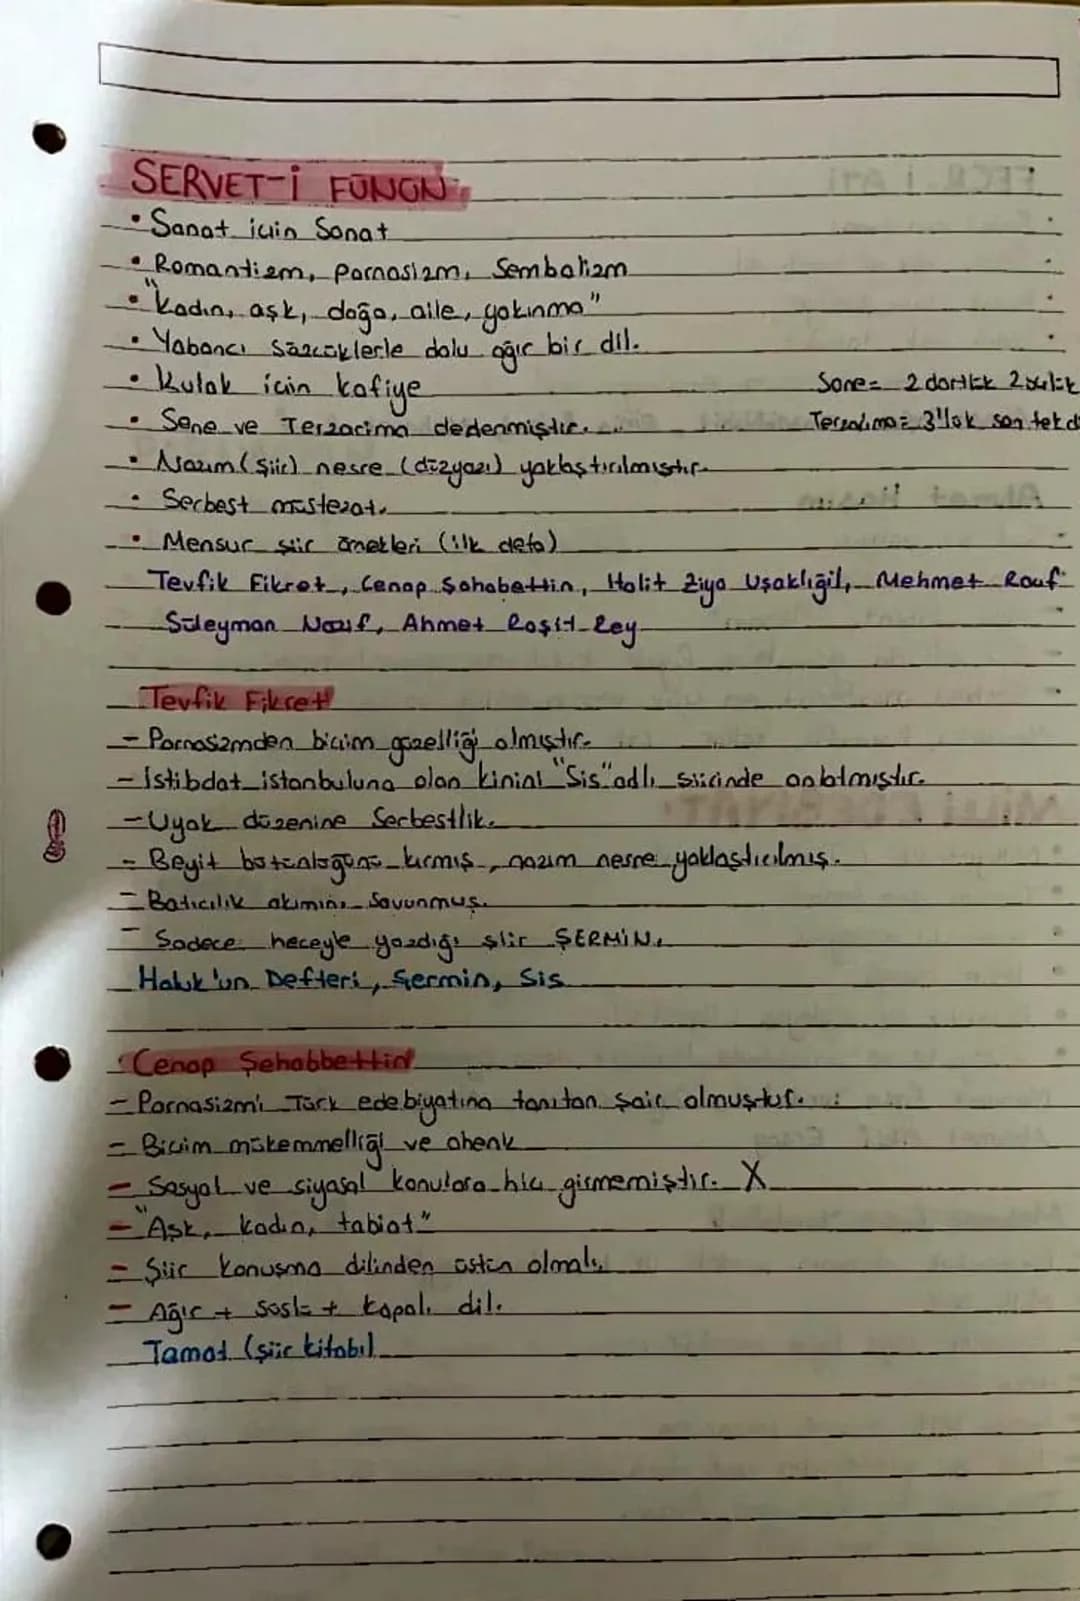 SERVET-İ FÜNUN
• Sanat için Sanat
• Romantizm, parnasizm, Sembolizm
• "Kadın, aşk, doğa, aile, yakınma"
• Yabancı sözcüklerle dolu ağır bir dil.
• Kulak için kafiye
Sone= 2 dörtlük 2 üçlük
• Sone ve Terzarima dedenmiştir.
Terzarima= 3'lük son tek d
• Nazım (şiir) nesre (düzyazı) yaklaştırılmıştır.
• Serbest müstezat.
• Mensur şiir örnekleri (ilk defa)
Tevfik Fikret, Cenap Şahabettin, Halit Ziya Uşaklıgil, Mehmet Rauf
Süleyman Nazif, Ahmet Reşit Rey
Tevfik Fikret
- Parnasizmden biçim güzelliği almıştır.
- İstibdat istanbuluna olan kinini "Sis" adlı şiirinde anlatmıştır.
- Uyak düzenine Serbestlik.
- Beyit bütünlüğünü kırmış, nazım nesne yaklaştırılmış.
- Batıcılık akımını Savunmuş.
- Sadece heceyle yazdığı şiir ŞERMİN.
Haluk'un Defteri, Şermin, Sis
Cenap Şehabbettin
- Parnasizm'i Türk edebiyatına tanıtan şair olmuştur.
- Biçim mükemmelliği ve ahenk
- Sosyal ve siyasal konulara hiç girmemiştir. X
- "Aşk, kadın, tabiat"
- Şiir konuşma dilinden üstün olmalı.
- Ağır + süslü + kapalı dil.
Tamat (şiir kitabı)